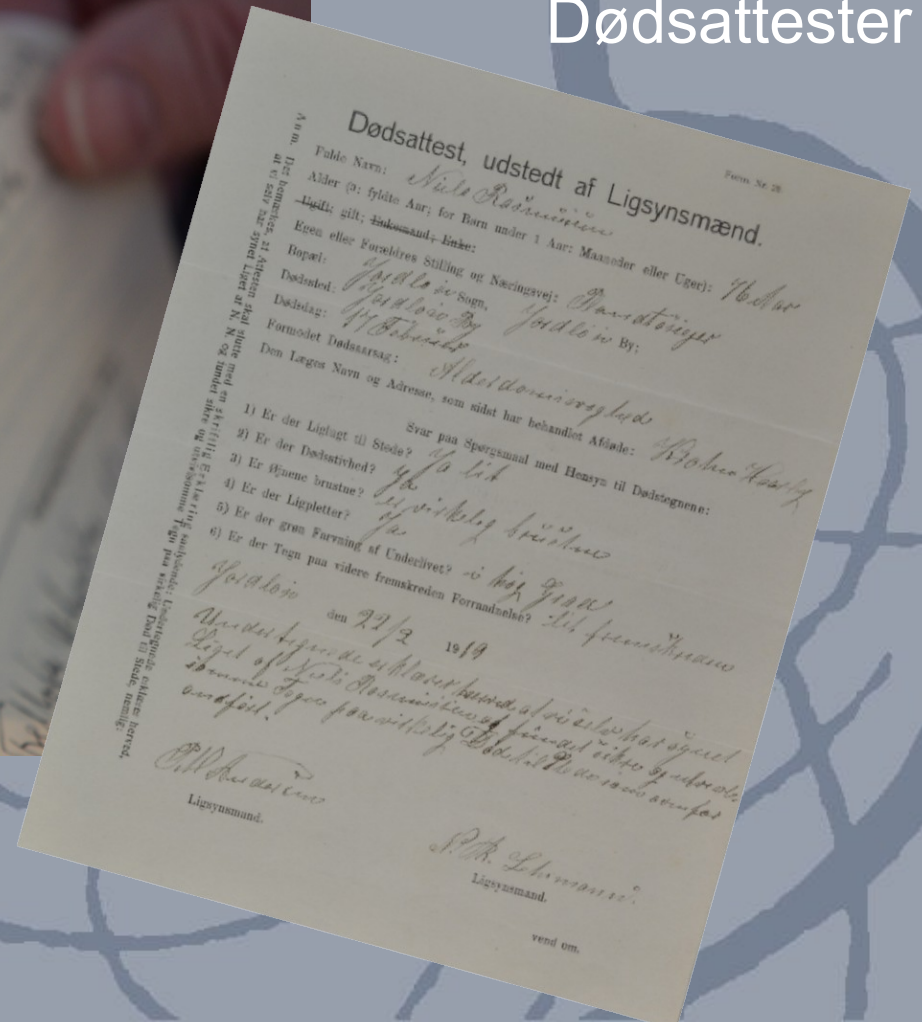 Dødsattester
Form. Nr. 28
Dødsattest, udstedt af Ligsynsmænd.
Fulde Navn: Niels Rasmussen
Alder (ɔ: fyldte Aar; for Børn under 1 Aar: Maaneder eller Uger): 76 Aar
Ugift; gift; Enkemand; Enke:
Egen eller Forældres Stilling og Næringsvej:
Bopæl: Jordløse Sogn, Jordløse By;
Dødssted: Jordløse By
Dødsdag: 17 Februar
Formodet Dødsaarsag: Alderdomssvaghed
Den Læges Navn og Adresse, som sidst har behandlet Afdøde: Haarby
Svar paa Spørgsmaal med Hensyn til Dødstegnene:
1) Er der Liglugt til Stede? Ja lit
2) Er der Dødsstivhed? Ja
3) Er Øjnene brustne? virkelig brüstne
4) Er der Ligpletter? Ja
5) Er der grøn Farvning af Underlivet? i høj Grad
6) Er der Tegn paa videre fremskreden Forraadnelse? lit
Jordløse den 22/2 1919
Undertegnede erklærer herved at vi selv har synet
Liget af Niels Rasmussen og fundet sikre og
Tegn paa virkelig Død til Stede som ovenfor
anført.
Andersen
Ligsynsmand.
Lehmann
Ligsynsmand.
vend om.
Anm. Det bemærkes, at Attesten skal slutte med en skriftlig Erklæring saalydende: Undertegnede erklærer herved,
at vi selv har synet Liget af N. N. og fundet sikre og utvivlsomme Tegn paa virkelig Død til Stede, nemlig: